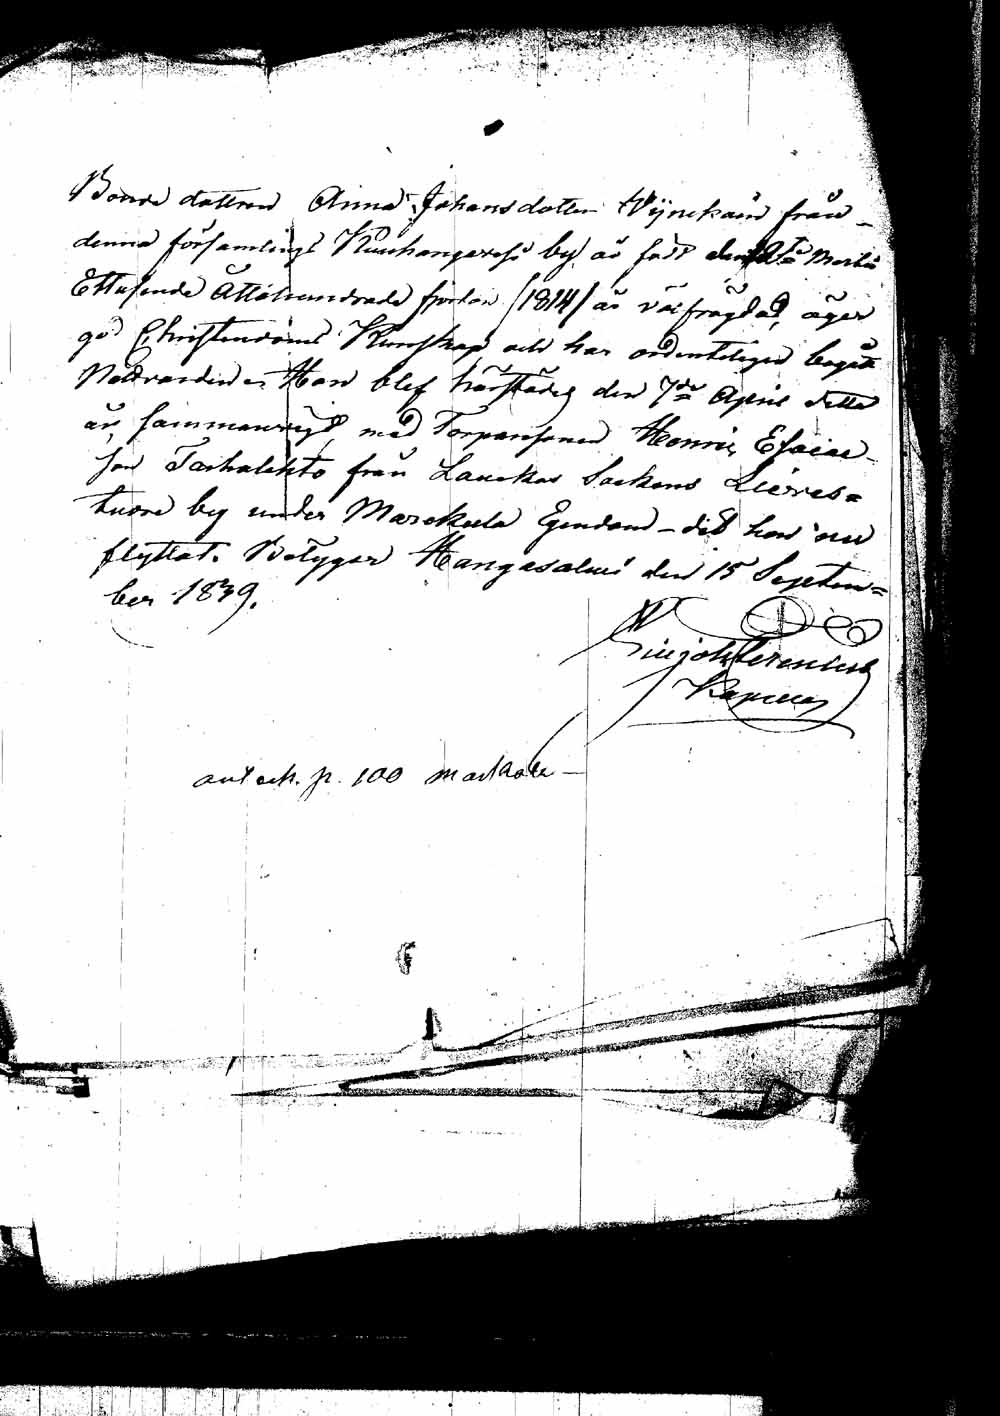 Bonde dottren Anna Johansdotter Wijnikain från
denna församlings Kuuhangaresi by är född den Martii
Ettusende Åttahundrade fjorton /1814/ är välfrägdad, äger
god Christendoms Kunskap och har ordenteligen begått
Nattvarden. Hon blef härstädes den 7de April detta
år sammanvigd med Torparesonen Henric Esaias-
son Tarhalehto från Laukas Sockens Lieves=
tuore by under Marckula Egendom - dit hon nu
flyttat. Betygar Hangasalmi den 15 Septem=
ber 1839.
Kapellan
ant. och. p. 100